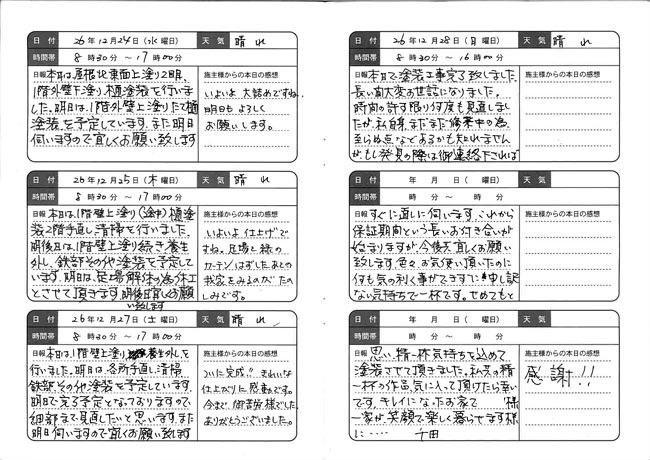 日付 26年12月24日(水曜日) 天気 晴れ
時間帯 8時30分〜17時00分
日報 本日は屋根北東面上塗り2明、
1階外壁下塗り、樋塗装を行いま
した。明日は、1階外壁上塗りたて樋
塗装を予定しています。また明日
伺いますので宜しくお願い致します
施主様からの本日の感想
いよいよ大詰めですね。
明日もよろしく
お願いします。
日付 26年12月25日(木曜日) 天気 晴れ
時間帯 8時30分〜17時00分
日報 本日は、1階壁上塗り(途中)樋塗
装2階手直し、清掃を行いました。
明後日は、1階壁上塗り続き、養生
外し、鉄部その他塗装を予定して
います。明日は、足場解体の為休工
とさせて頂きます。明後日宜しくお願い
致します
施主様からの本日の感想
いよいよ仕上げで
すね。足場と緑の
カーテンはずしたあとの
我家をみるのがたの
しみです。
日付 26年12月27日(土曜日) 天気 晴れ
時間帯 8時30分〜17時00分
日報 本日は、1階壁上塗り 養生外しを
行いました。明日は、各所手直し、清掃
鉄部、その他塗装を予定しています。
明日で完了予定となっておりますので
細部まで見直したいと思います。また
明日伺いますので宜しくお願い致します
施主様からの本日の感想
ついに完成!! きれいな
仕上がりに感動です。
今まで御苦労様でした。
ありがとうございました。
日付 26年12月28日(日曜日) 天気 晴れ
時間帯 8時30分〜16時00分
日報 本日で塗装工事完了致しました。
長い間大変お世話になりました。
時間の許す限り何度も見直しまし
たが、私自身、まだまだ修業中の為
至らぬ点などあるかも知れません
が、もし発見の際は御連絡下されば
施主様からの本日の感想
日付 年 月 日( 曜日) 天気
時間帯 時 分〜 時 分
日報 すぐに直しに伺います。これから
保証期間という長いお付き合いが
始まりますが、今後共宜しくお願い
致します。色々、お気使い頂いたのに
何も気の利く事ができずに申し訳
ない気持ちで一杯です。せめてもと
施主様からの本日の感想
日付 年 月 日( 曜日) 天気
時間帯 時 分〜 時 分
日報 思い、精一杯気持ちを込めて
塗装させて頂きました。私共の精
一杯の作品、気に入って頂けたら幸い
です。キレイになったお家で 様
一家が、笑顔で楽しく暮らせます様
に…… 千田
施主様からの本日の感想
感謝!!